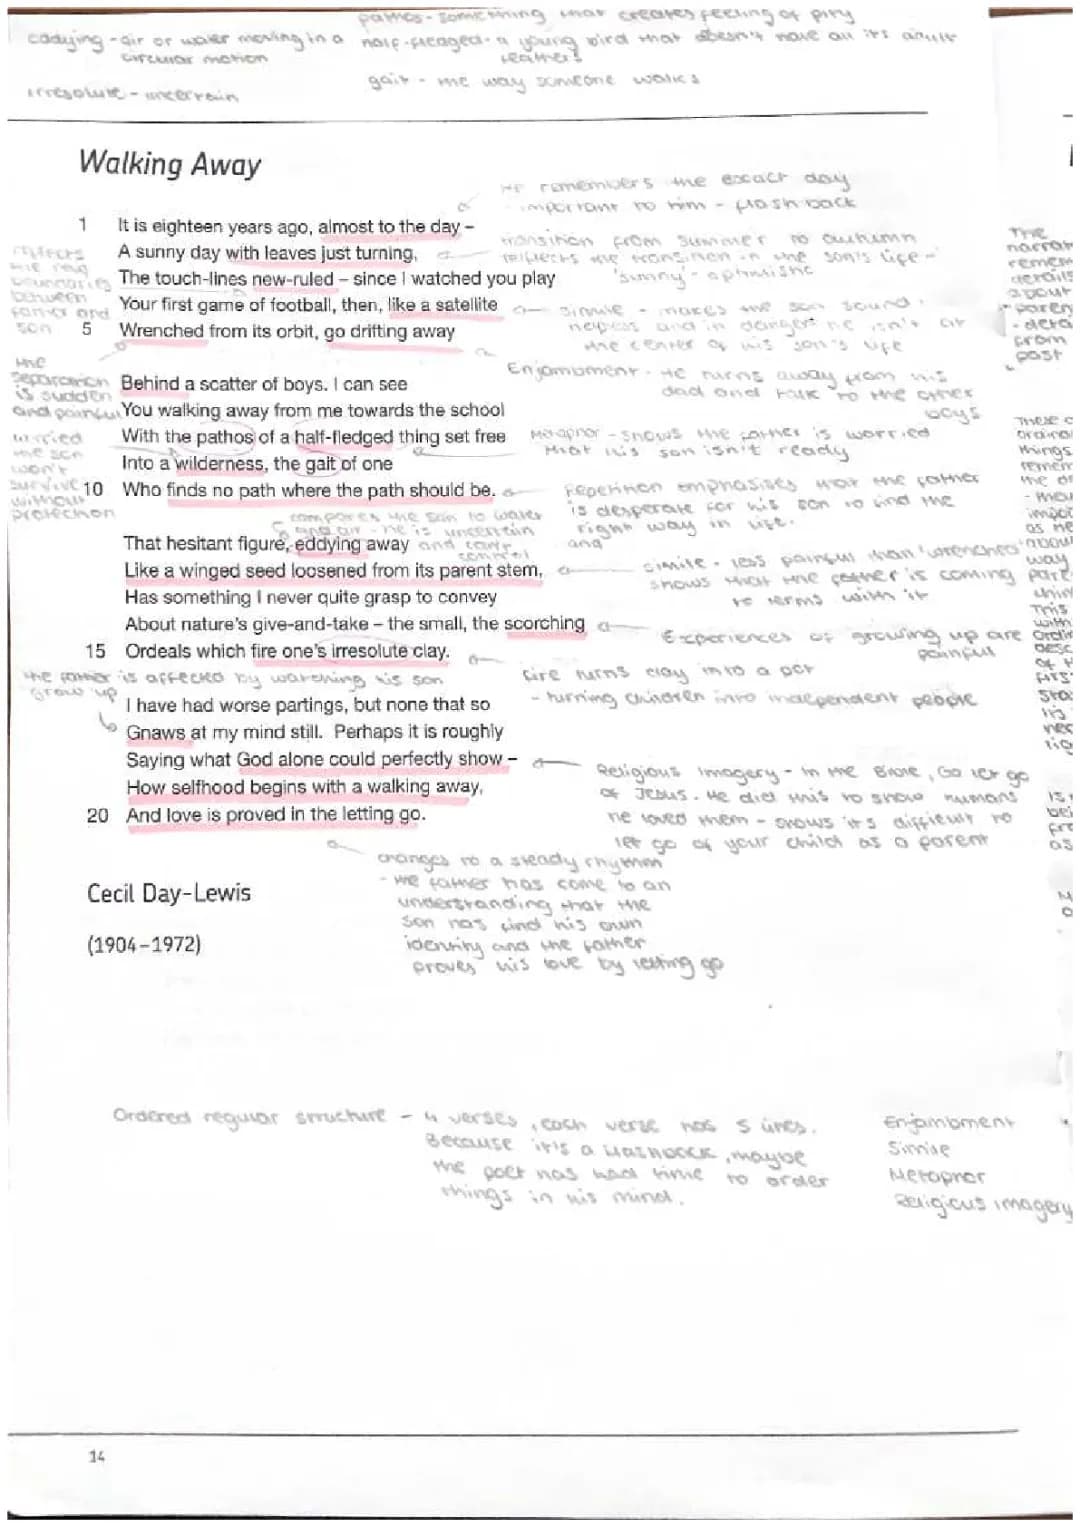 pathos - something that creates feeling of pity
eddying - air or water moving in a circular motion
half-fledged - a young bird that doesn't have all its adult feathers
gait - the way someone walks
irresolute - uncertain
Walking Away
He remembers the exact day
important to him - flash back
1 It is eighteen years ago, almost to the day –
A sunny day with leaves just turning,
The touch-lines new-ruled – since I watched you play
Your first game of football, then, like a satellite
5 Wrenched from its orbit, go drifting away
transition from summer to autumn
reflects the transition in the son's life -
'sunny' -
reflects
the new
boundaries
between
father and
son
simile - makes the son sound
helpless and in danger he isn't at
the center of his son's life
the
separation
is sudden
and painful
Enjambment - He turns away from his
dad and talk to the other
boys
Behind a scatter of boys. I can see
You walking away from me towards the school
With the pathos of a half-fledged thing set free
Into a wilderness, the gait of one
10 Who finds no path where the path should be.
worried
the son
won't
survive
without
protection
Metaphor - shows the father is worried
that his son isn't ready
Repetition emphasises that the father
is desperate for his son to find the
right way in life.
compares the son to water
and air - he is uncertain
and can't
control
and
That hesitant figure, eddying away
Like a winged seed loosened from its parent stem,
Has something I never quite grasp to convey
About nature's give-and-take – the small, the scorching
15 Ordeals which fire one's irresolute clay.
simile - less painful than 'wrenched'
shows that the father is coming
to terms with it
Experiences of growing up are
painful
fire turns clay into a pot
- turning children into independent people
the father is affected by watching his son
grow up
I have had worse partings, but none that so
Gnaws at my mind still. Perhaps it is roughly
Saying what God alone could perfectly show –
How selfhood begins with a walking away,
20 And love is proved in the letting go.
Religious imagery - In the Bible, Go let go
of Jesus. He did this to show humans
he loved them - shows it's difficult to
let go of your child as a parent
changes to a steady rhythm
- the father has come to an
understanding that the
son has find his own
identity and the father
proves his love by letting go
Cecil Day-Lewis
(1904–1972)
Ordered regular structure - 4 verses, each verse has 5 lines.
Because it's a flashback, maybe
the poet has had time to order
things in his mind.
Enjambment
Simile
Metaphor
Religious imagery
14